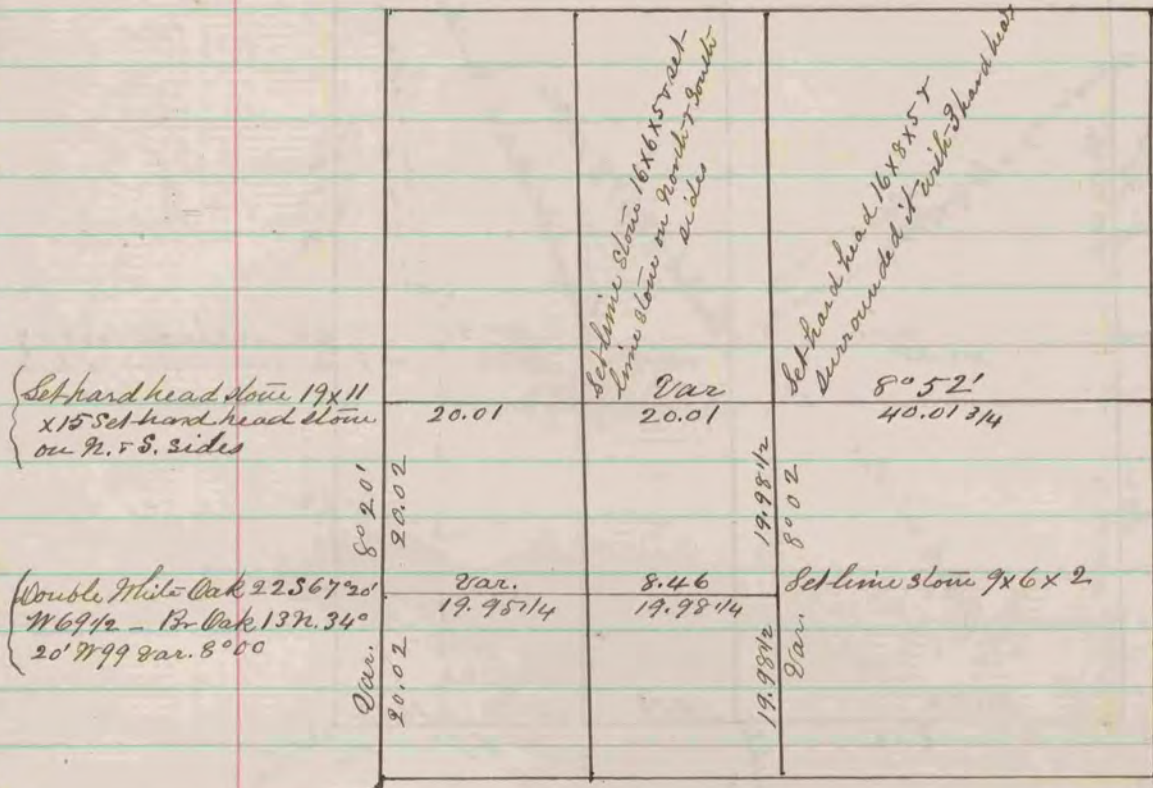 Set lime stone 16x6x5 & set
lime stone on North & South
sides
Set hard head 16x8x5 &
surrounded it with 3 hard heads
Set hard head stone 19x11
x15 Set hard head stone
on N. & S. sides
Var 8° 52'
20.01 20.01 40.01 3/4
Var. 8° 20'
20.02
20.02
19.98 1/2
19.98 1/2
Var. 8° 02
Double White Oak 22 S 67° 20'
W 69 1/2 - Br Oak 13 N. 34°
20' W 99 Var. 8° 00
Var. 8.46
19.95 1/4 19.98 1/4
Set lime stone 9x6x2